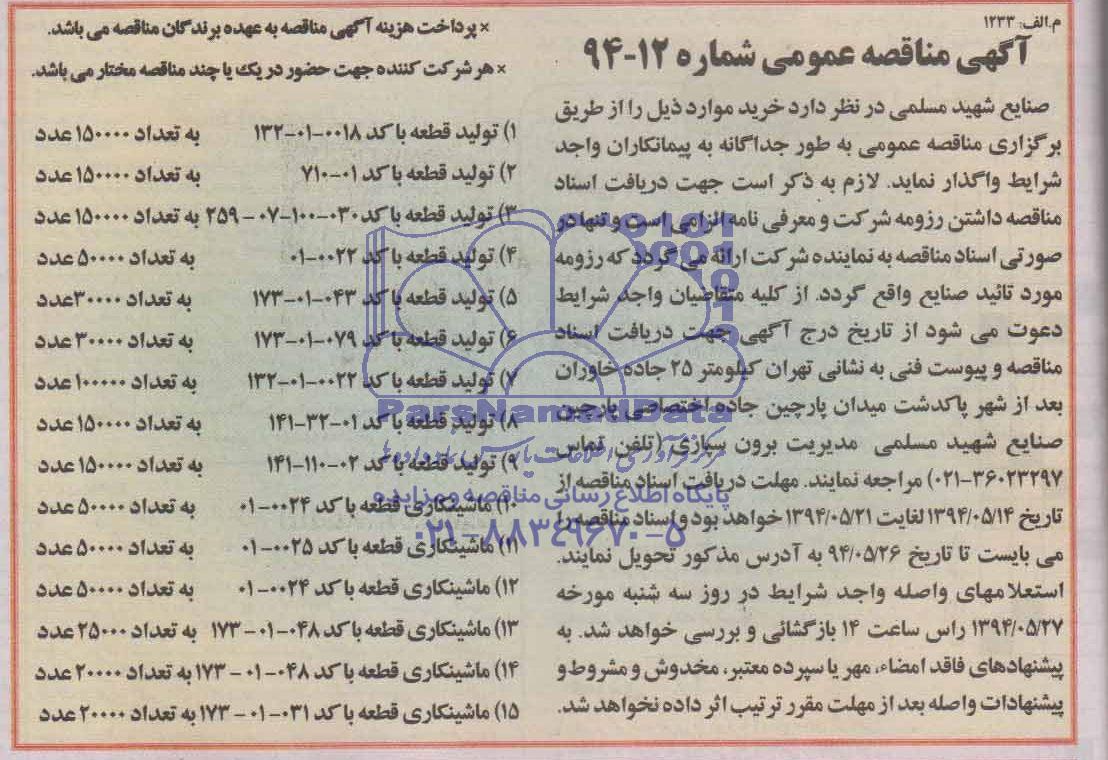 م.الف: ۱۲۳۳
آگهی مناقصه عمومی شماره ۱۲-۹۴
صنایع شهید مسلمی در نظر دارد خرید موارد ذیل را از طریق
برگزاری مناقصه عمومی به طور جداگانه به پیمانکاران واجد
شرایط واگذار نماید. لازم به ذکر است جهت دریافت اسناد
مناقصه داشتن رزومه شرکت و معرفی نامه الزامی است و تنها در
صورتی اسناد مناقصه به نماینده شرکت ارائه می گردد که رزومه
مورد تائید صنایع واقع گردد. از کلیه متقاضیان واجد شرایط
دعوت می شود از تاریخ درج آگهی جهت دریافت اسناد
مناقصه و پیوست فنی به نشانی تهران کیلومتر ۲۵ جاده خاوران
بعد از شهر پاکدشت میدان پارچین جاده اختصاصی پارچین
صنایع شهید مسلمی مدیریت برون سپاری (تلفن تماس
۳۶۰۲۳۲۹۷-۰۲۱) مراجعه نمایند. مهلت دریافت اسناد مناقصه از
تاریخ ۱۳۹۴/۰۵/۱۴ لغایت ۱۳۹۴/۰۵/۲۱ خواهد بود و اسناد مناقصه را
می بایست تا تاریخ ۹۴/۰۵/۲۶ به آدرس مذکور تحویل نمایند.
استعلامهای واصله واجد شرایط در روز سه شنبه مورخه
۱۳۹۴/۰۵/۲۷ راس ساعت ۱۴ بازگشائی و بررسی خواهد شد. به
پیشنهادهای فاقد امضاء، مهر یا سپرده معتبر، مخدوش و مشروط و
پیشنهادات واصله بعد از مهلت مقرر ترتیب اثر داده نخواهد شد.
× پرداخت هزینه آگهی مناقصه به عهده برندگان مناقصه می باشد.
× هر شرکت کننده جهت حضور در یک یا چند مناقصه مختار می باشد.
۱) تولید قطعه با کد ۰۰۱۸-۰۱-۱۳۲ به تعداد ۱۵۰۰۰۰ عدد
۲) تولید قطعه با کد ۰۱-۷۱۰ به تعداد ۱۵۰۰۰۰ عدد
۳) تولید قطعه با کد ۰۳۰-۱۰۰-۰۷-۲۵۹ به تعداد ۱۵۰۰۰۰ عدد
۴) تولید قطعه با کد ۰۰۲۲-۰۱ به تعداد ۵۰۰۰۰ عدد
۵) تولید قطعه با کد ۰۴۳-۰۱-۱۷۳ به تعداد ۳۰۰۰۰ عدد
۶) تولید قطعه با کد ۰۷۹-۰۱-۱۷۳ به تعداد ۳۰۰۰۰ عدد
۷) تولید قطعه با کد ۰۰۲۲-۰۱-۱۳۲ به تعداد ۱۰۰۰۰۰ عدد
۸) تولید قطعه با کد ۰۱-۳۲-۱۴۱ به تعداد ۱۵۰۰۰۰ عدد
۹) تولید قطعه با کد ۰۲-۱۱۰-۱۴۱ به تعداد ۱۵۰۰۰۰ عدد
۱۰) ماشینکاری قطعه با کد ۰۰۲۴-۰۱ به تعداد ۵۰۰۰۰ عدد
۱۱) ماشینکاری قطعه با کد ۰۰۲۵-۰۱ به تعداد ۵۰۰۰۰ عدد
۱۲) ماشینکاری قطعه با کد ۰۰۲۴-۰۱ به تعداد ۵۰۰۰۰ عدد
۱۳) ماشینکاری قطعه با کد ۰۴۸-۰۱-۱۷۳ به تعداد ۲۵۰۰۰ عدد
۱۴) ماشینکاری قطعه با کد ۰۴۸-۰۱-۱۷۳ به تعداد ۲۰۰۰۰ عدد
۱۵) ماشینکاری قطعه با کد ۰۳۱-۰۱-۱۷۳ به تعداد ۲۰۰۰۰ عدد
ParsNamadData
مرکز فرآوری اطلاعات پارس نماد داده ها
پایگاه اطلاع رسانی مناقصه و مزایده
۰۲۱-۸۸۳۴۹۶۷۰-۵